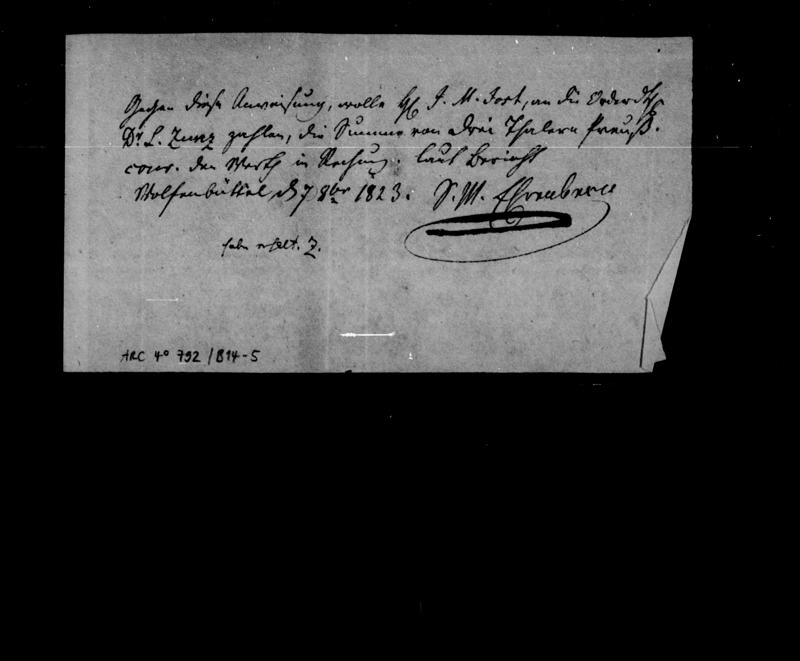 Gegen diese Anweisung, wolle H. J. M. Jost, an die Order des
Dr. L. Zunz zahlen, die Summe von Drei Thalern Preuß.
cour. den Werth in Rechnung. laut Bericht
Wolfenbüttel, d 7 8br 1823. S. M. Ehrenberg
habe erhalt. Z.
ARC 4° 792 / B14-5